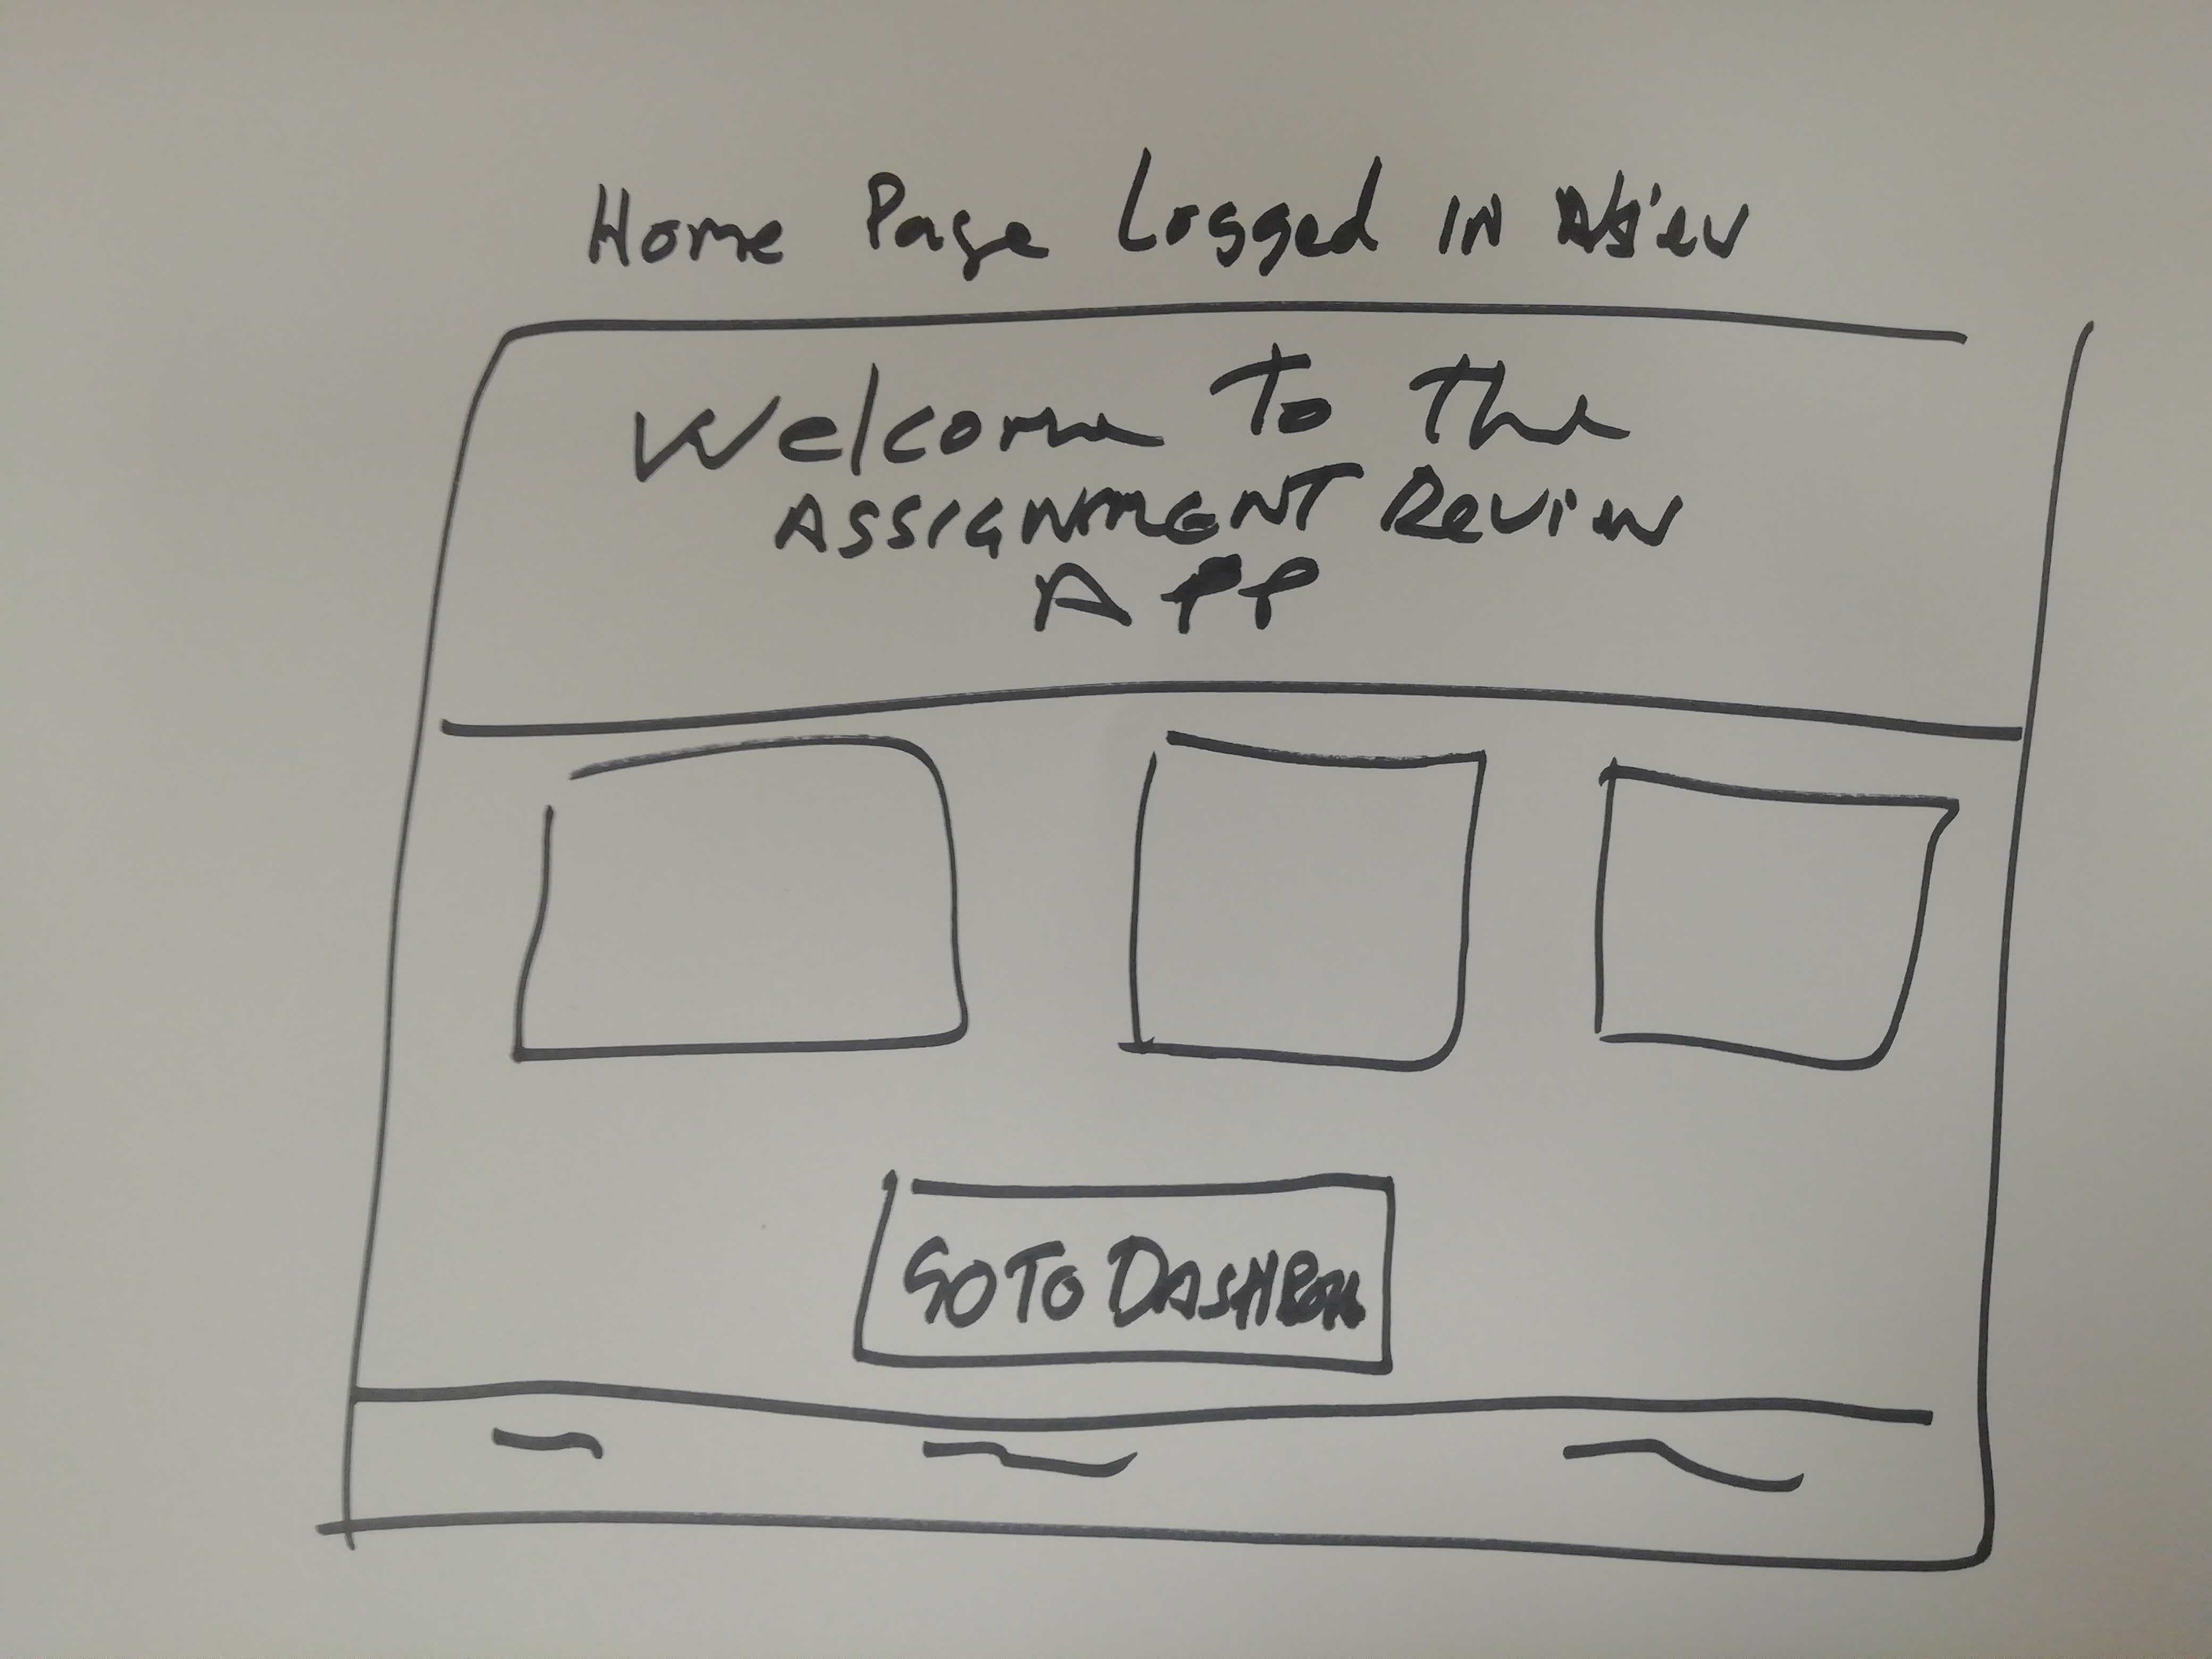 Home Page Logged IN View
Welcome To The
ASSIGNMENT Review
APP
GO TO DASHBOA